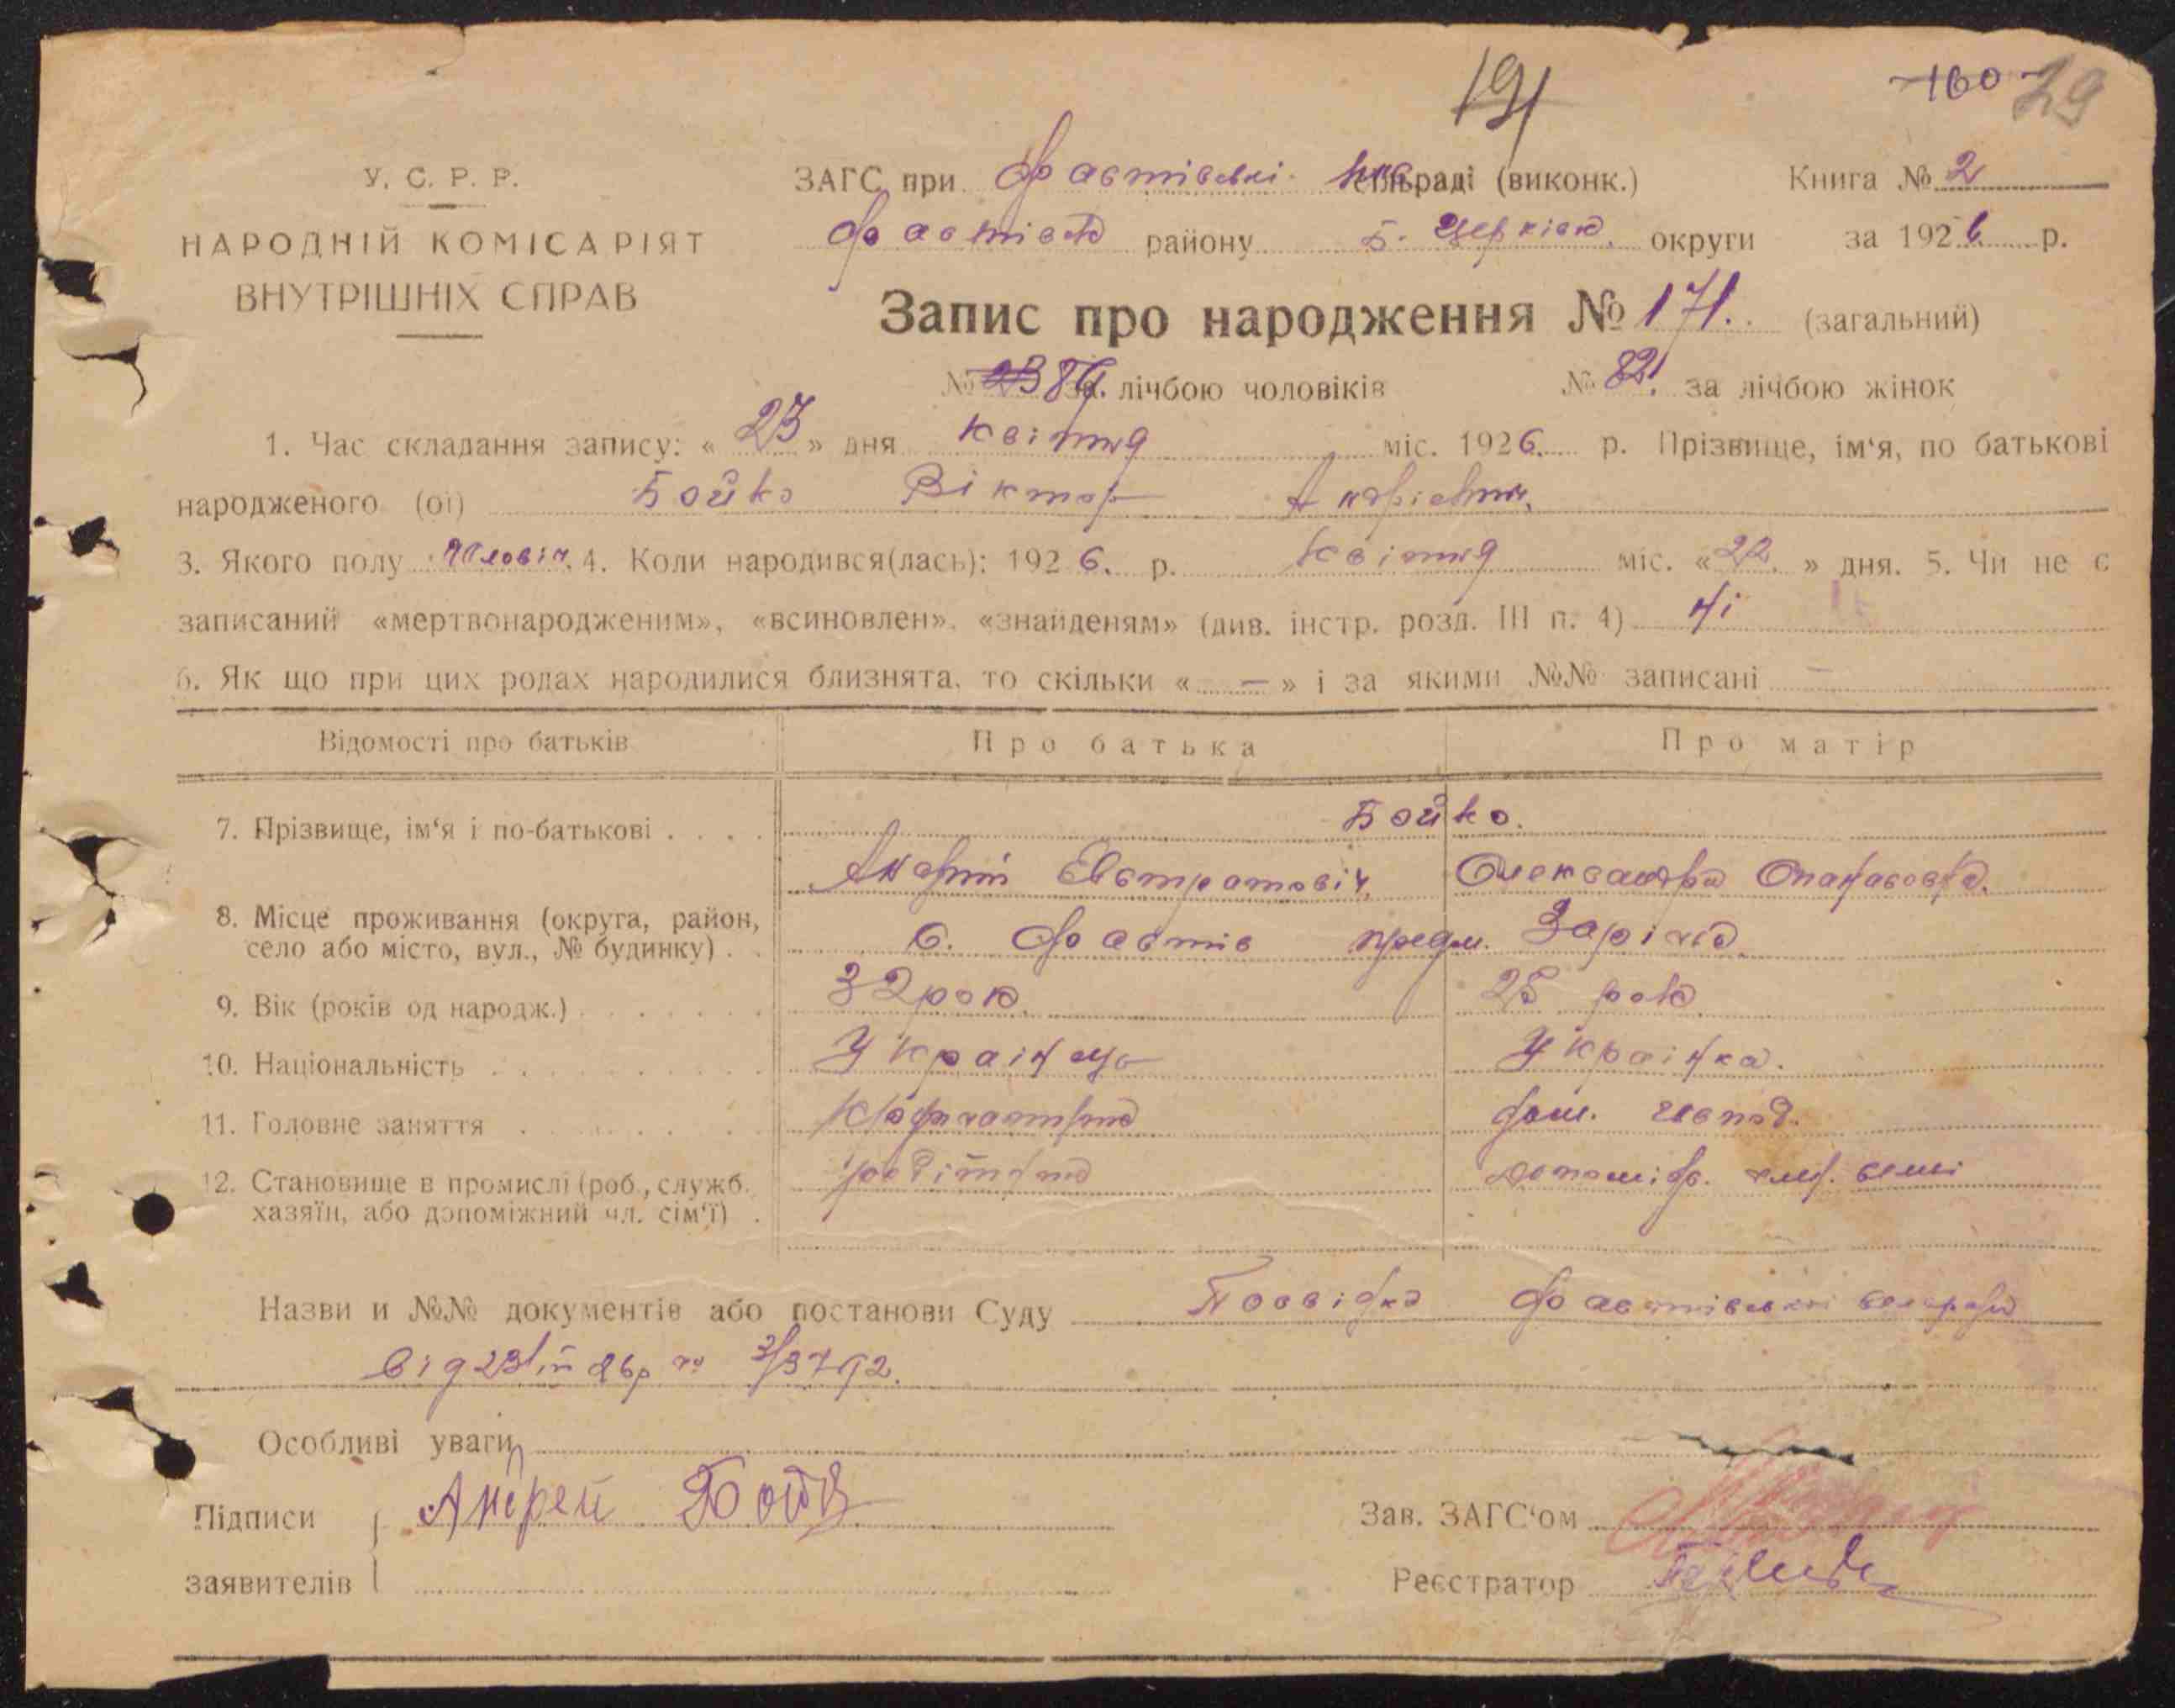 191
160 29
У. С. Р. Р.
ЗАГС при Фастівські сільраді (виконк.) Книга № 2
НАРОДНІЙ КОМІСАРІЯТ
Фастівськ району Б. Церківск. округи за 1926 р.
ВНУТРІШНІХ СПРАВ
Запис про народження № 171. (загальний)
№ 89. за лічбою чоловіків № 82. за лічбою жінок
1. Час складання запису: « 23 » дня квітня міс. 1926. р. Прізвище, ім‘я, по батькові
народженого (ої) Бойко Віктор Андрієвич.
3. Якого полу чоловіч. 4. Коли народився(лась): 1926. р. квітня міс. «22.» дня. 5. Чи не є
записаний «мертвонародженим», «всиновлен», «знайденям» (див. інстр. розд. III п. 4) ні
6. Як що при цих родах народилися близнята, то скільки « – » і за якими №№ записані –
Відомості про батьків Про батька Про матір
7. Прізвище, ім‘я і по-батькові . . . . Бойко.
Андрій Евстратовіч, Олександра Опанасовна.
8. Місце проживання (округа, район,
село або місто, вул., № будинку) . . с. Фастів предм. Заріччя.
9. Вік (років од народж.) . . . . . . . 32 рок. 25 рок
10. Національність . . . . . . . . . . Українець Українка.
11. Головне заняття . . . . . . . дом. господ.
12. Становище в промислі (роб., служб.
хазяїн, або допоміжний чл. сім‘ї) . робітник допоміж. член. семьі
Назви и №№ документів або постанови Суду Посвідка Фастівської сельради
від 23/IV 26р №
Особливі уваги
Підписи Андрей Бойко Зав. ЗАГС‘ом
заявителів Реєстратор